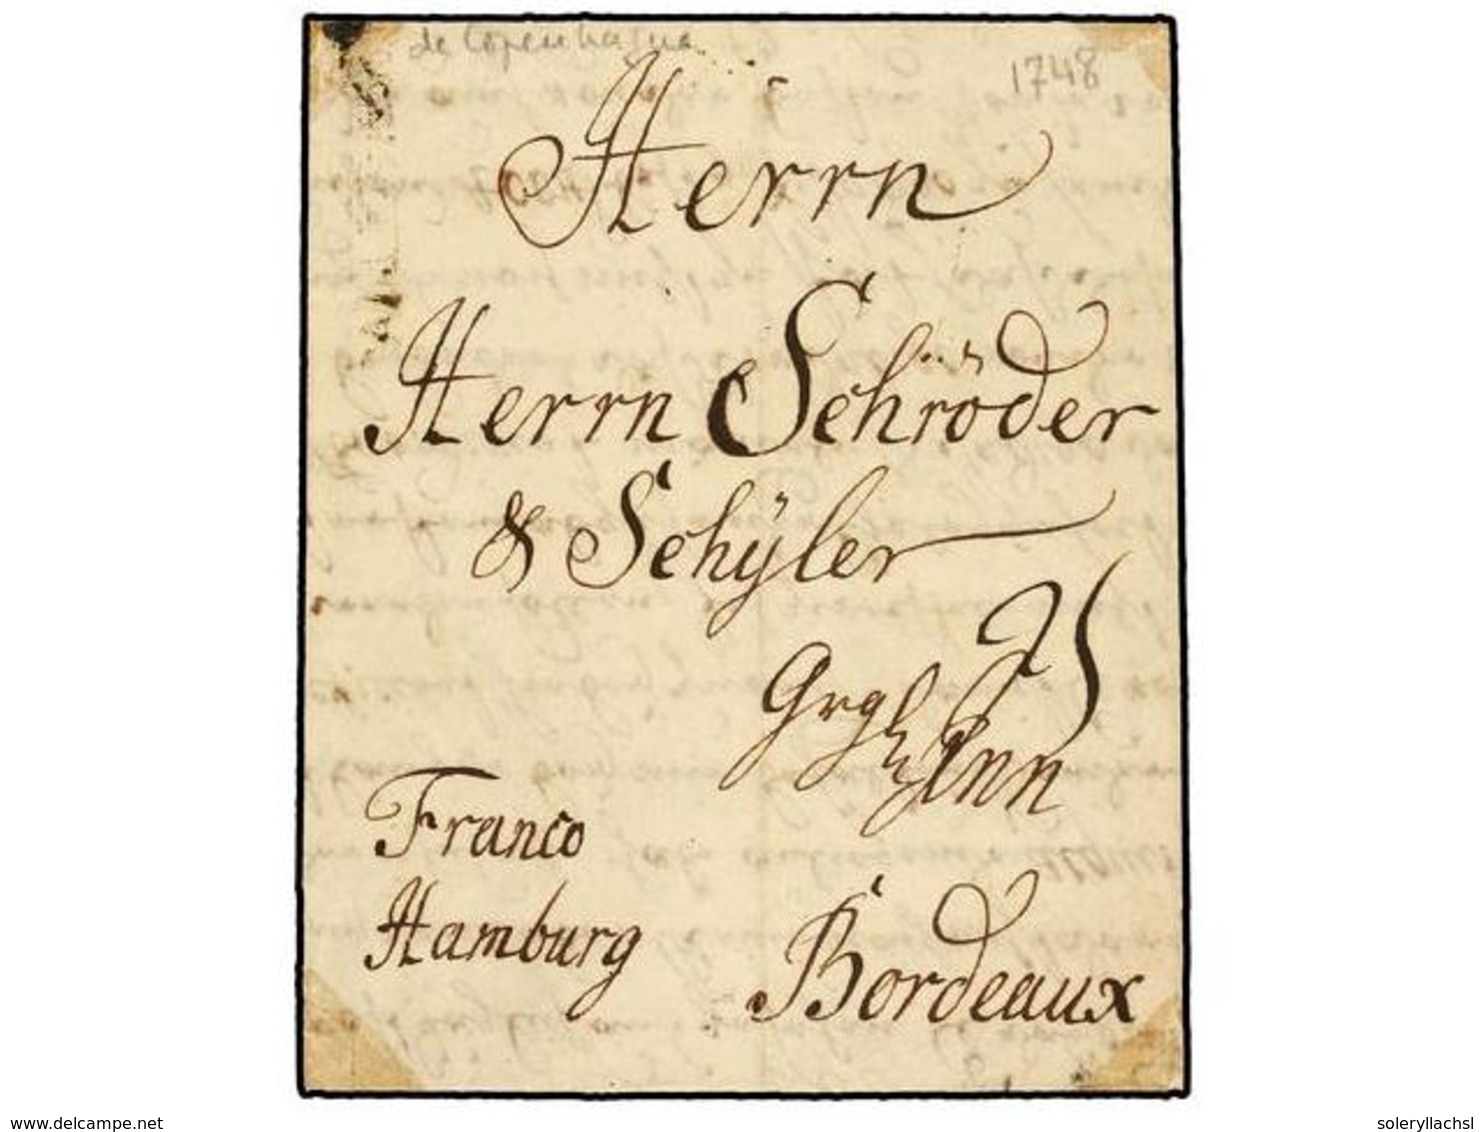 de Copenhague
1748
Herrn
Herrn Schröder
& Schÿler
Franco
Hamburg
Bordeaux
www.delcampe.net
soleryllachsl